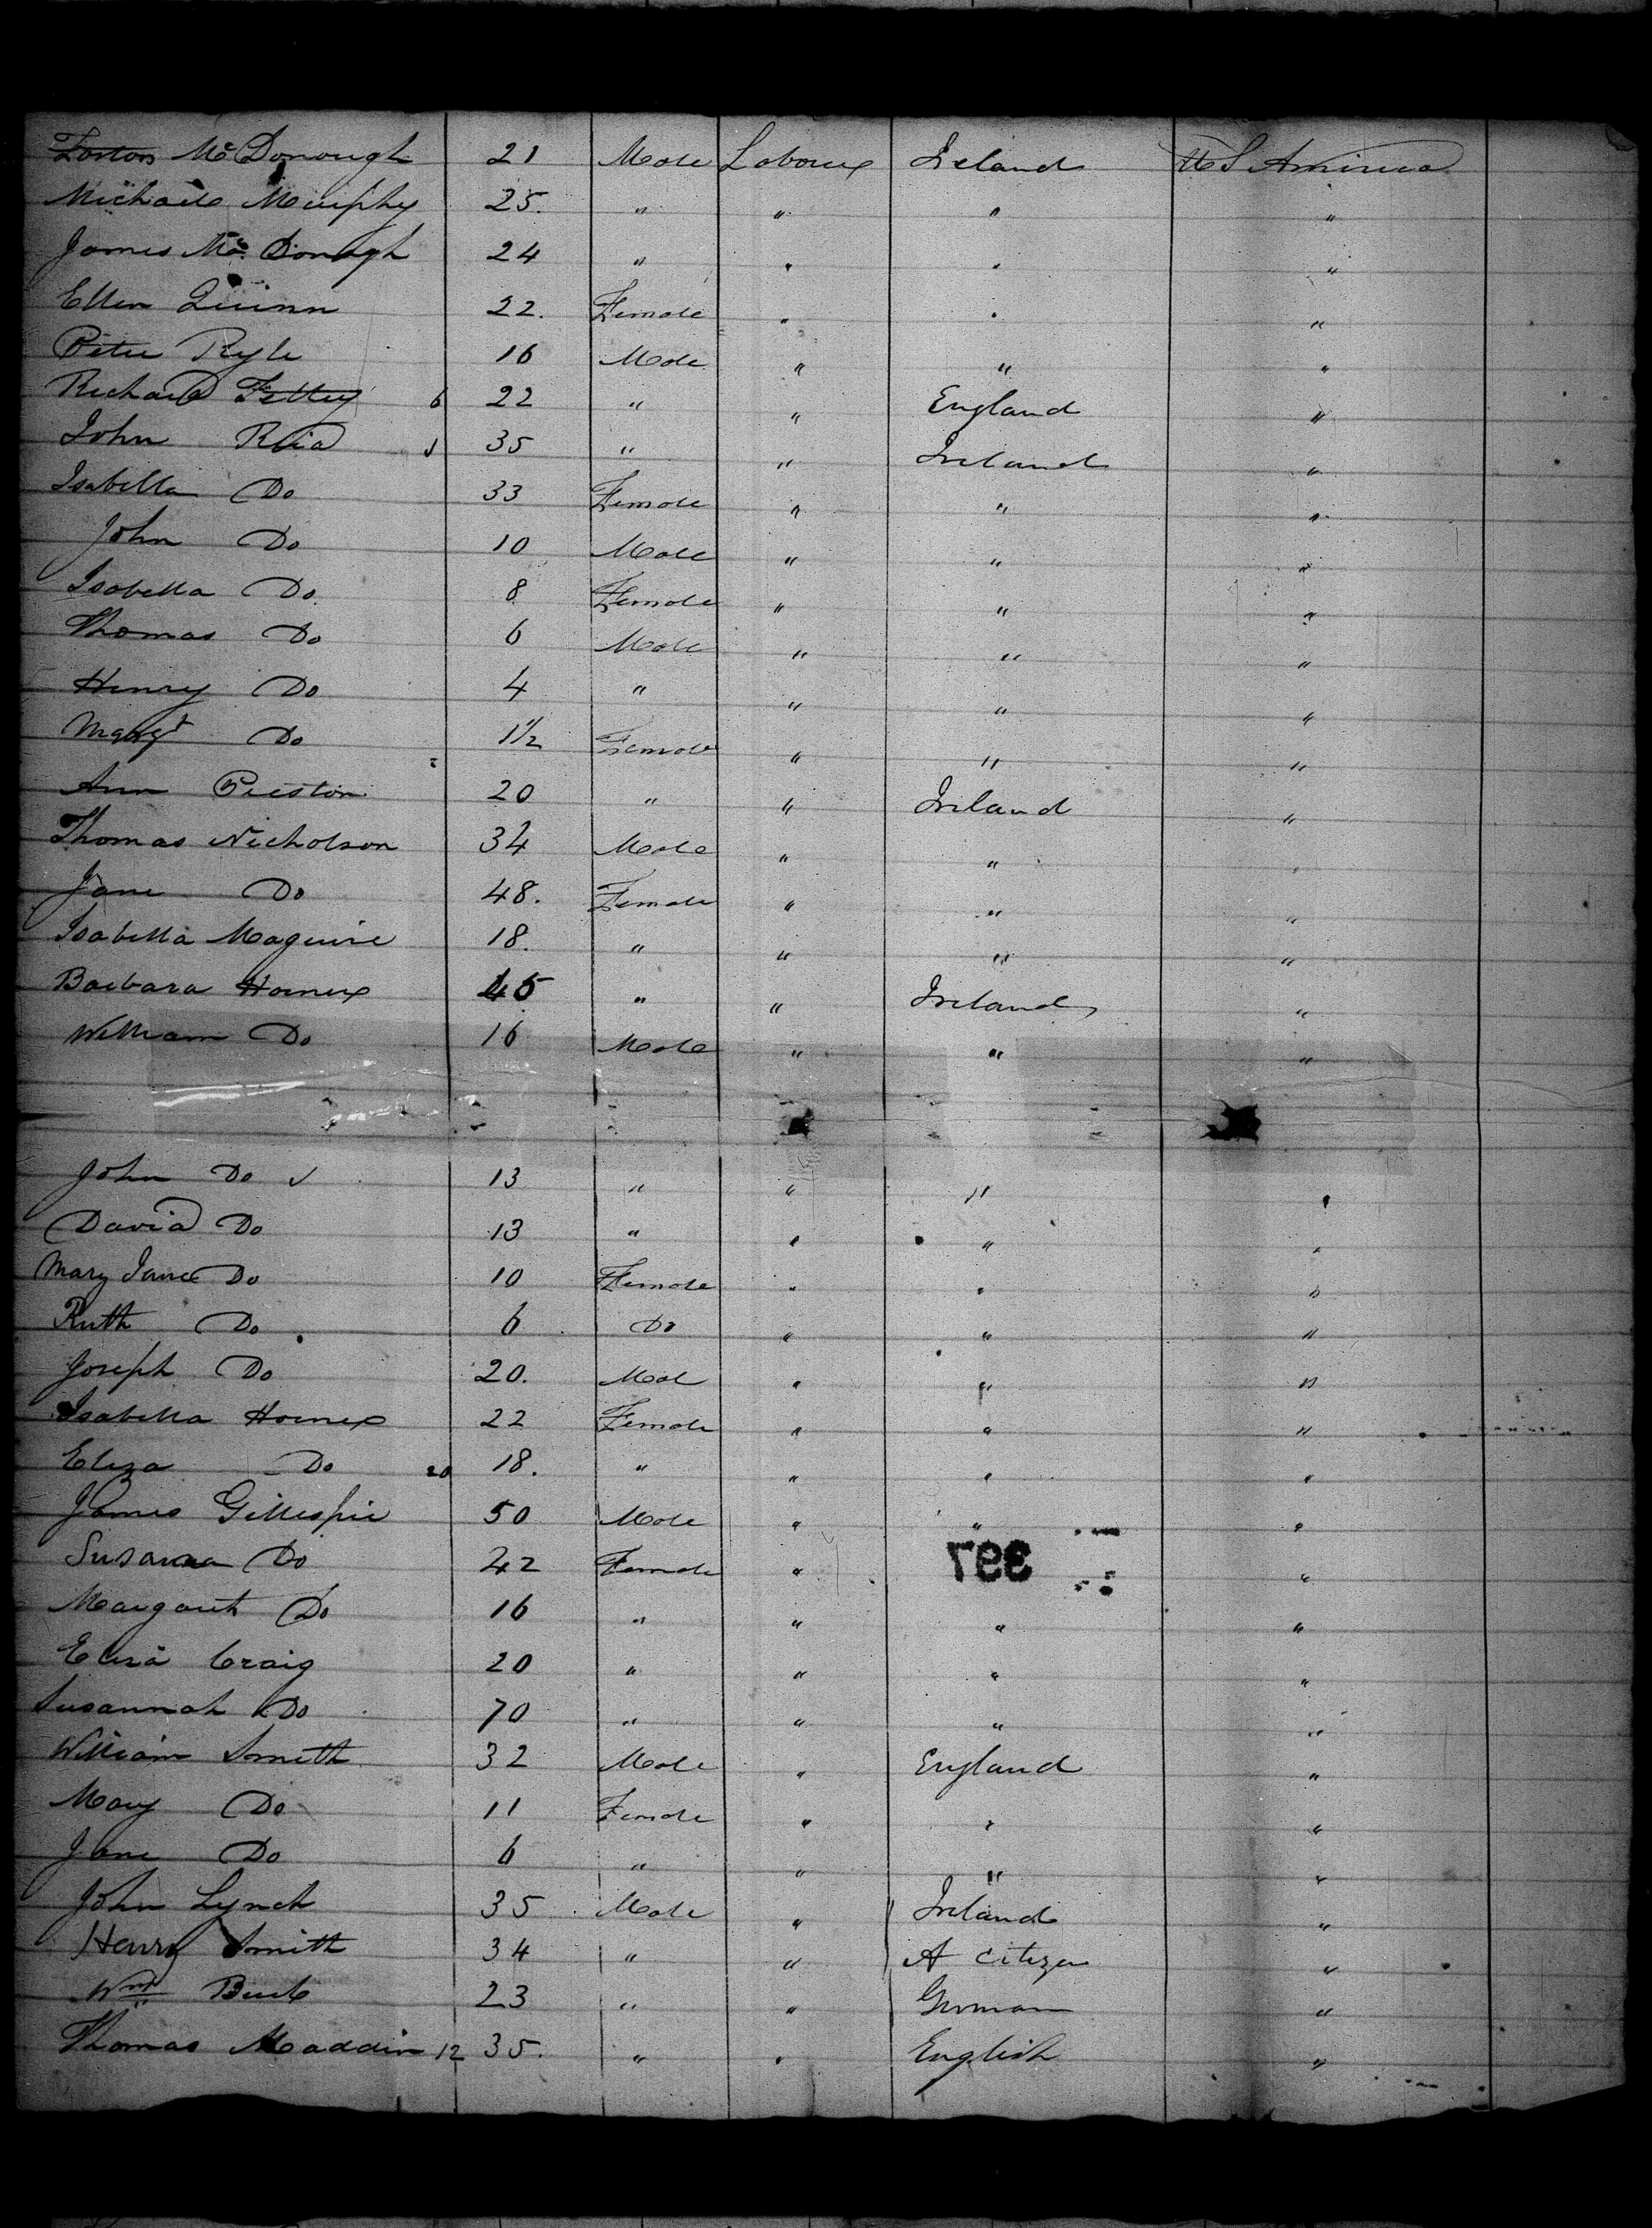 McDonough 21 Male Labourer Ireland U S America
Michaile Murphy 25. " " " "
James McDonagh 24 " " " "
Ellen Quinn 22. Female " " "
Peter Ryle 16 Male " " "
Richard 6 22 " " England "
John Reid 35 " " Ireland "
Isabella Do 33 Female " " "
John Do 10 Male " " "
Isabella Do 8 Female " " "
Thomas Do 6 Male " " "
Henry Do 4 " " " "
Margt Do 1½ Female " " "
Ann Preston 20 " " Ireland "
Thomas Nicholson 34 Male " " "
Jane Do 48. Female " " "
Isabella Maguire 18. " " " "
Barbara 45 " " Ireland "
William Do 16 Male " " "
John Do 13 " " " "
David Do 13 " " " "
Mary Jane Do 10 Female " " "
Ruth Do 6 Do " " "
Joseph Do 20. Mal " " "
Isabella 22 Female " " "
Eliza Do 20 18. " " " "
James Gillespie 50 Male " " "
Susanna Do 42 Female " "
397
Margaret Do 16 " " " "
Eliza Craig 20 " " " "
Susannah Do 70 " " " "
William Smith 32 Male " England "
Mary Do 11 Female " " "
Jane Do 6 " " " "
John Lynch 35 Male " Ireland "
Henry Smith 34 " " A Citizen "
Wm 23 " " German "
Thomas Maddin 12 35. " " English "